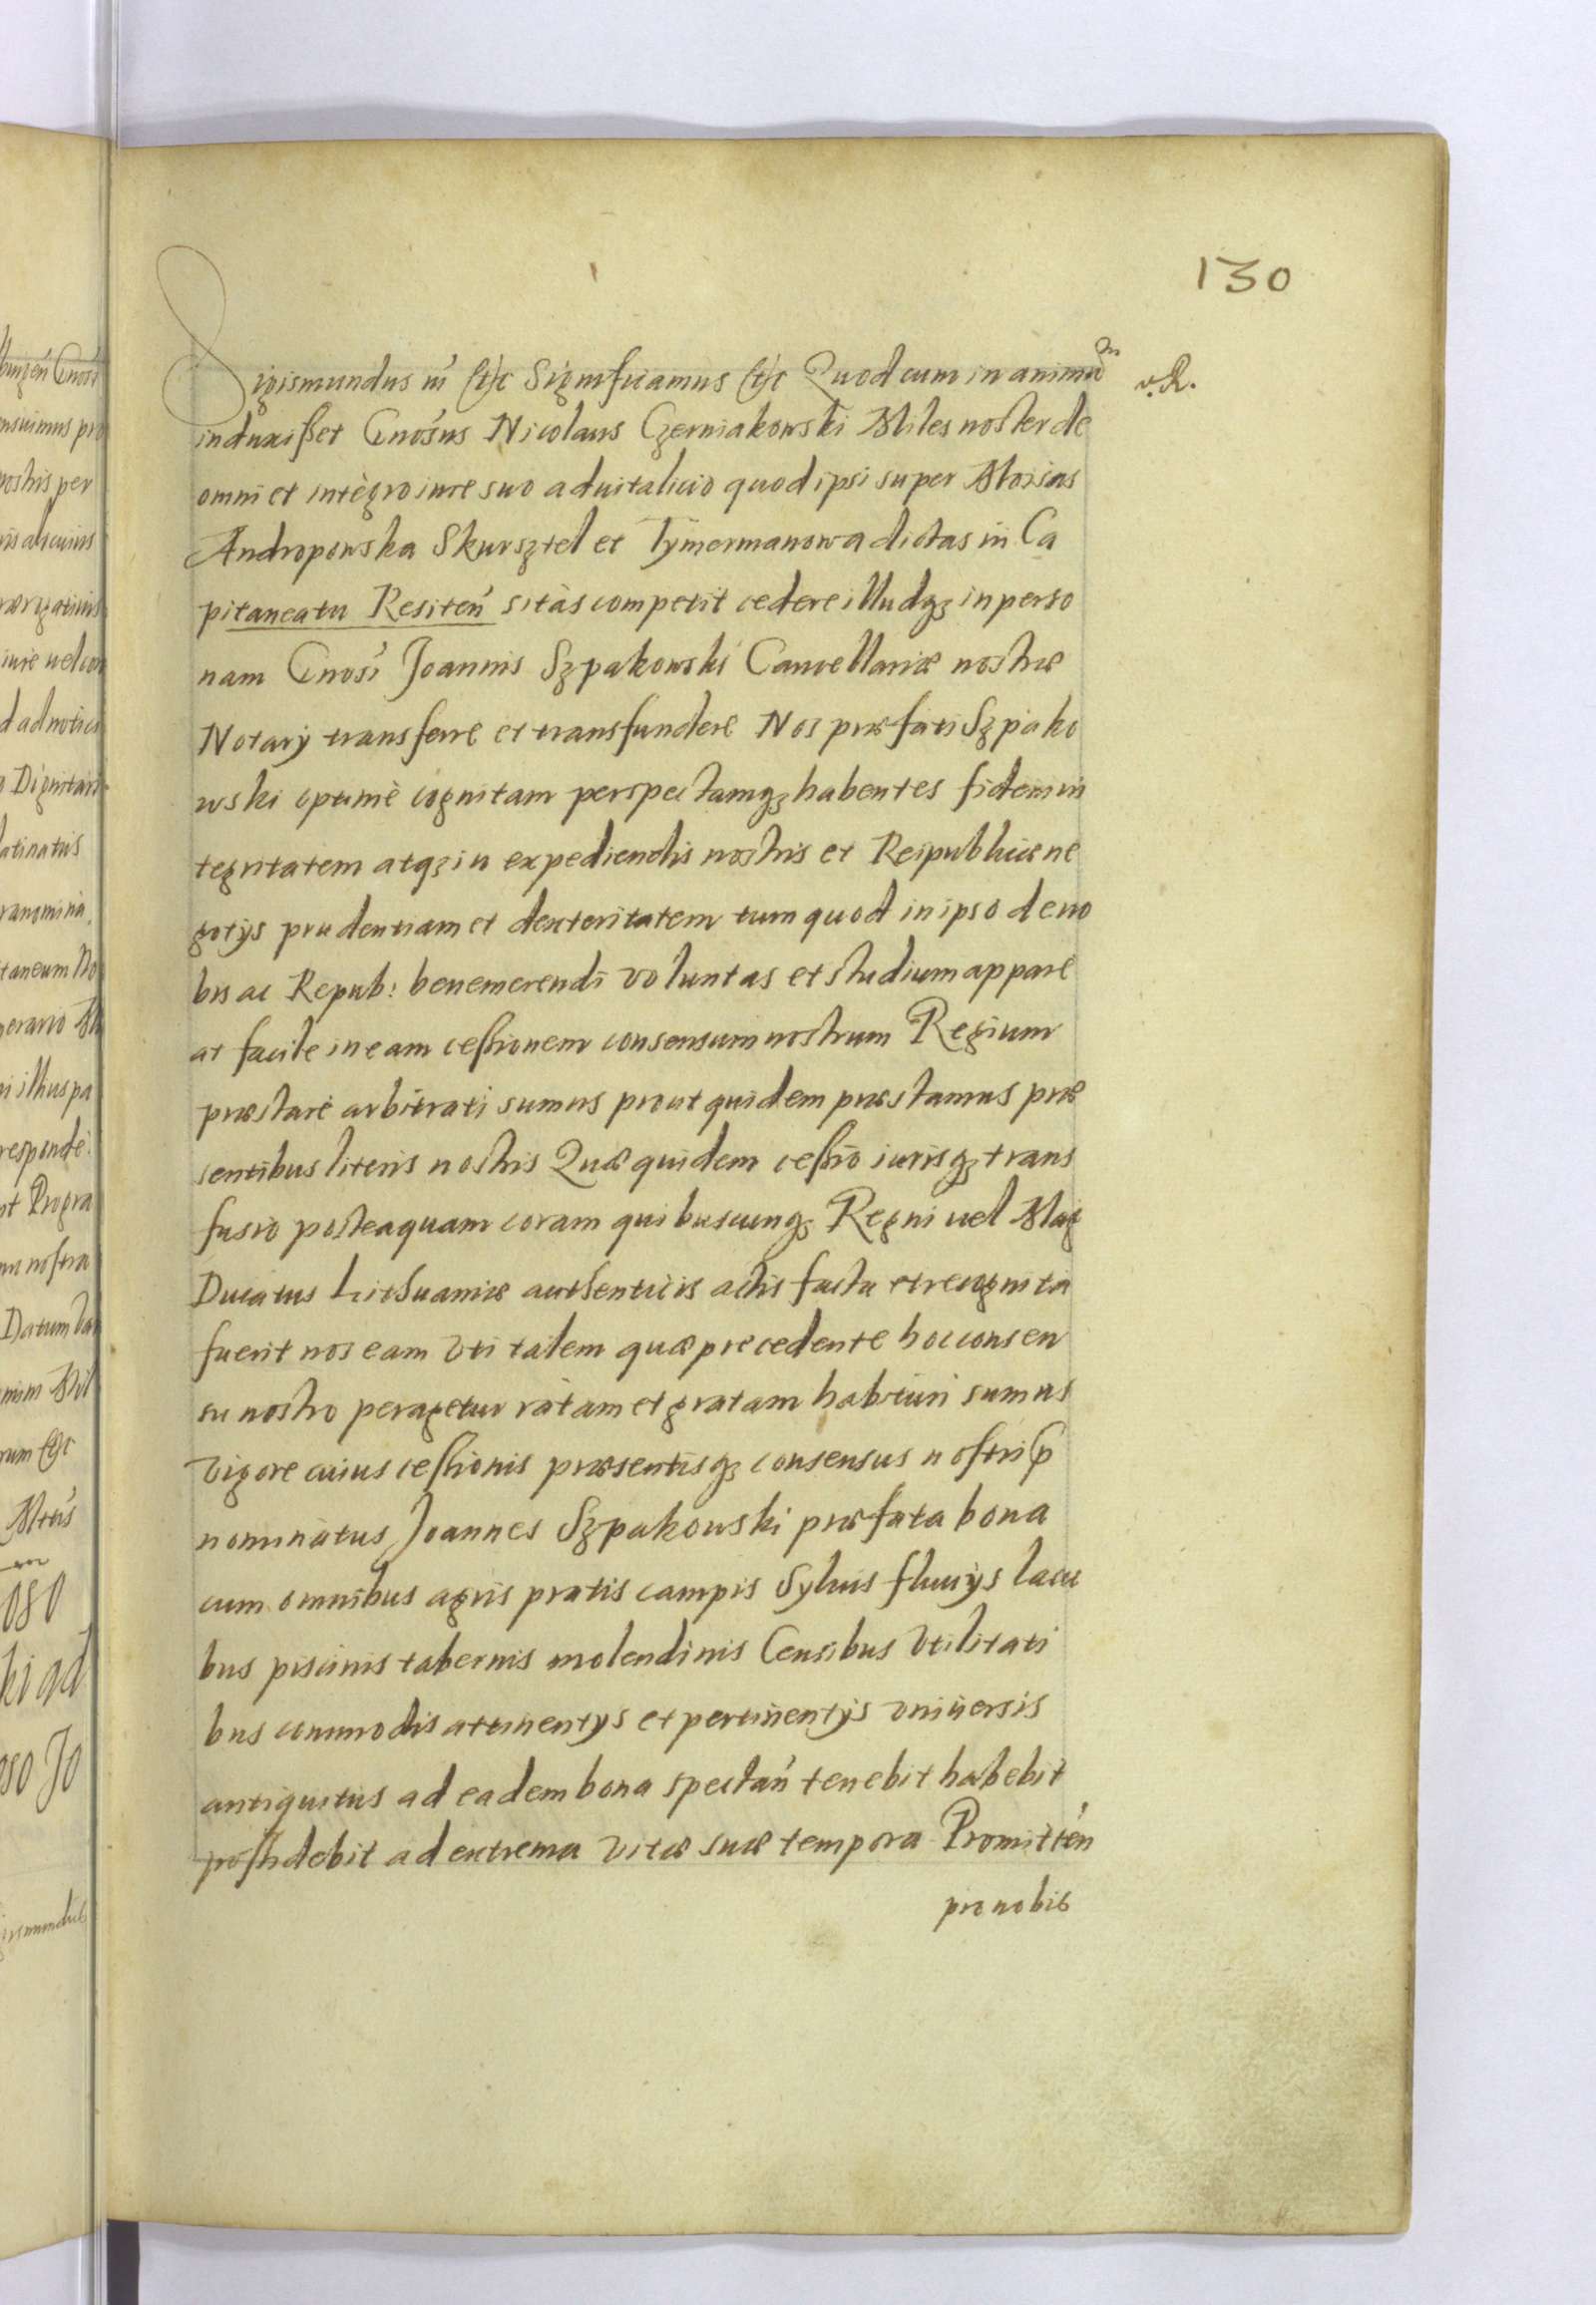 130
Sigismundus III etc Significamus etc Quod cum in animũ
v. R.
induxisset Gnosus Nicolaus Czerniakowski Miles noster de
omni et integro iure suo aduitalicio quod ipsi super Moisas
Andropowska Skursztel et Tymermanowa dictas in Ca
pitaneatu Resiten̄ sitas competit cedere illudq3 in perso
nam Gnosi Joannis Szpakowski Cancellariæ nostræ
Notarÿ transferre et transfundere Nos præfati Szpako
wski optimè cognitam perspectamq3 habentes fidem in
tegritatem atq3 in expediendis nostris et Reipublicæ ne
gotÿs prudentiam et dexteritatem tum quod in ipso de no
bis ac Repub: benemerendi voluntas et studium appare
at facile in eam cessionem consensum nostrum Regium
præstare arbitrati sumus prout quidem præstamus præ
sentibus literis nostris Quæ quidem cessio iurisq3 trans
fusio posteaquam coram quibuscunq3 Regni uel Mag
Ducatus Lithuaniæ authenticis actis facta et recognita
fuerit nos eam vti talem quæ precedente hoc consen
su nostro peragetur ratam et gratam habituri sumus
Vigore cuius cessionis præsentisq3 consensus nostri p̱
nominatus Joannes Szpakowski præfata bona
cum omnibus agris pratis campis Syluis fluuÿs lacu
bus piscinis tabernis molendinis Censibus Vtilitati
bus commodis attinentÿs et pertinentÿs vniuersis
antiquitus ad eadem bona spectan̄ tenebit habebit
possidebit ad extrema vitæ suæ tempora Promitten̄
pro nobis